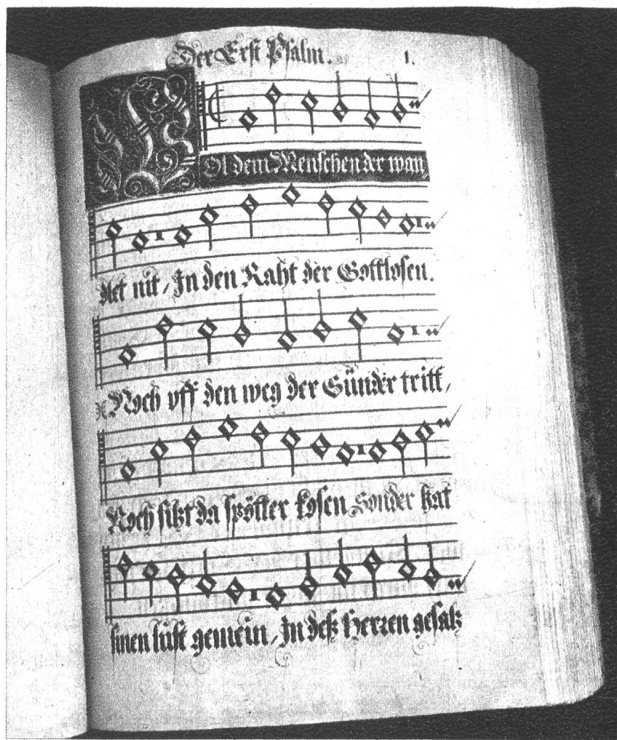 Der Erst Psalm. 1.
WOl dem Menschen der wan
det nit, In den Raht der Gottlosen.
Noch vff den weg der Sünder tritt,
Noch sitzt da spötter losen sonder hat
sinen lust gemein, In deß Herren gesatz